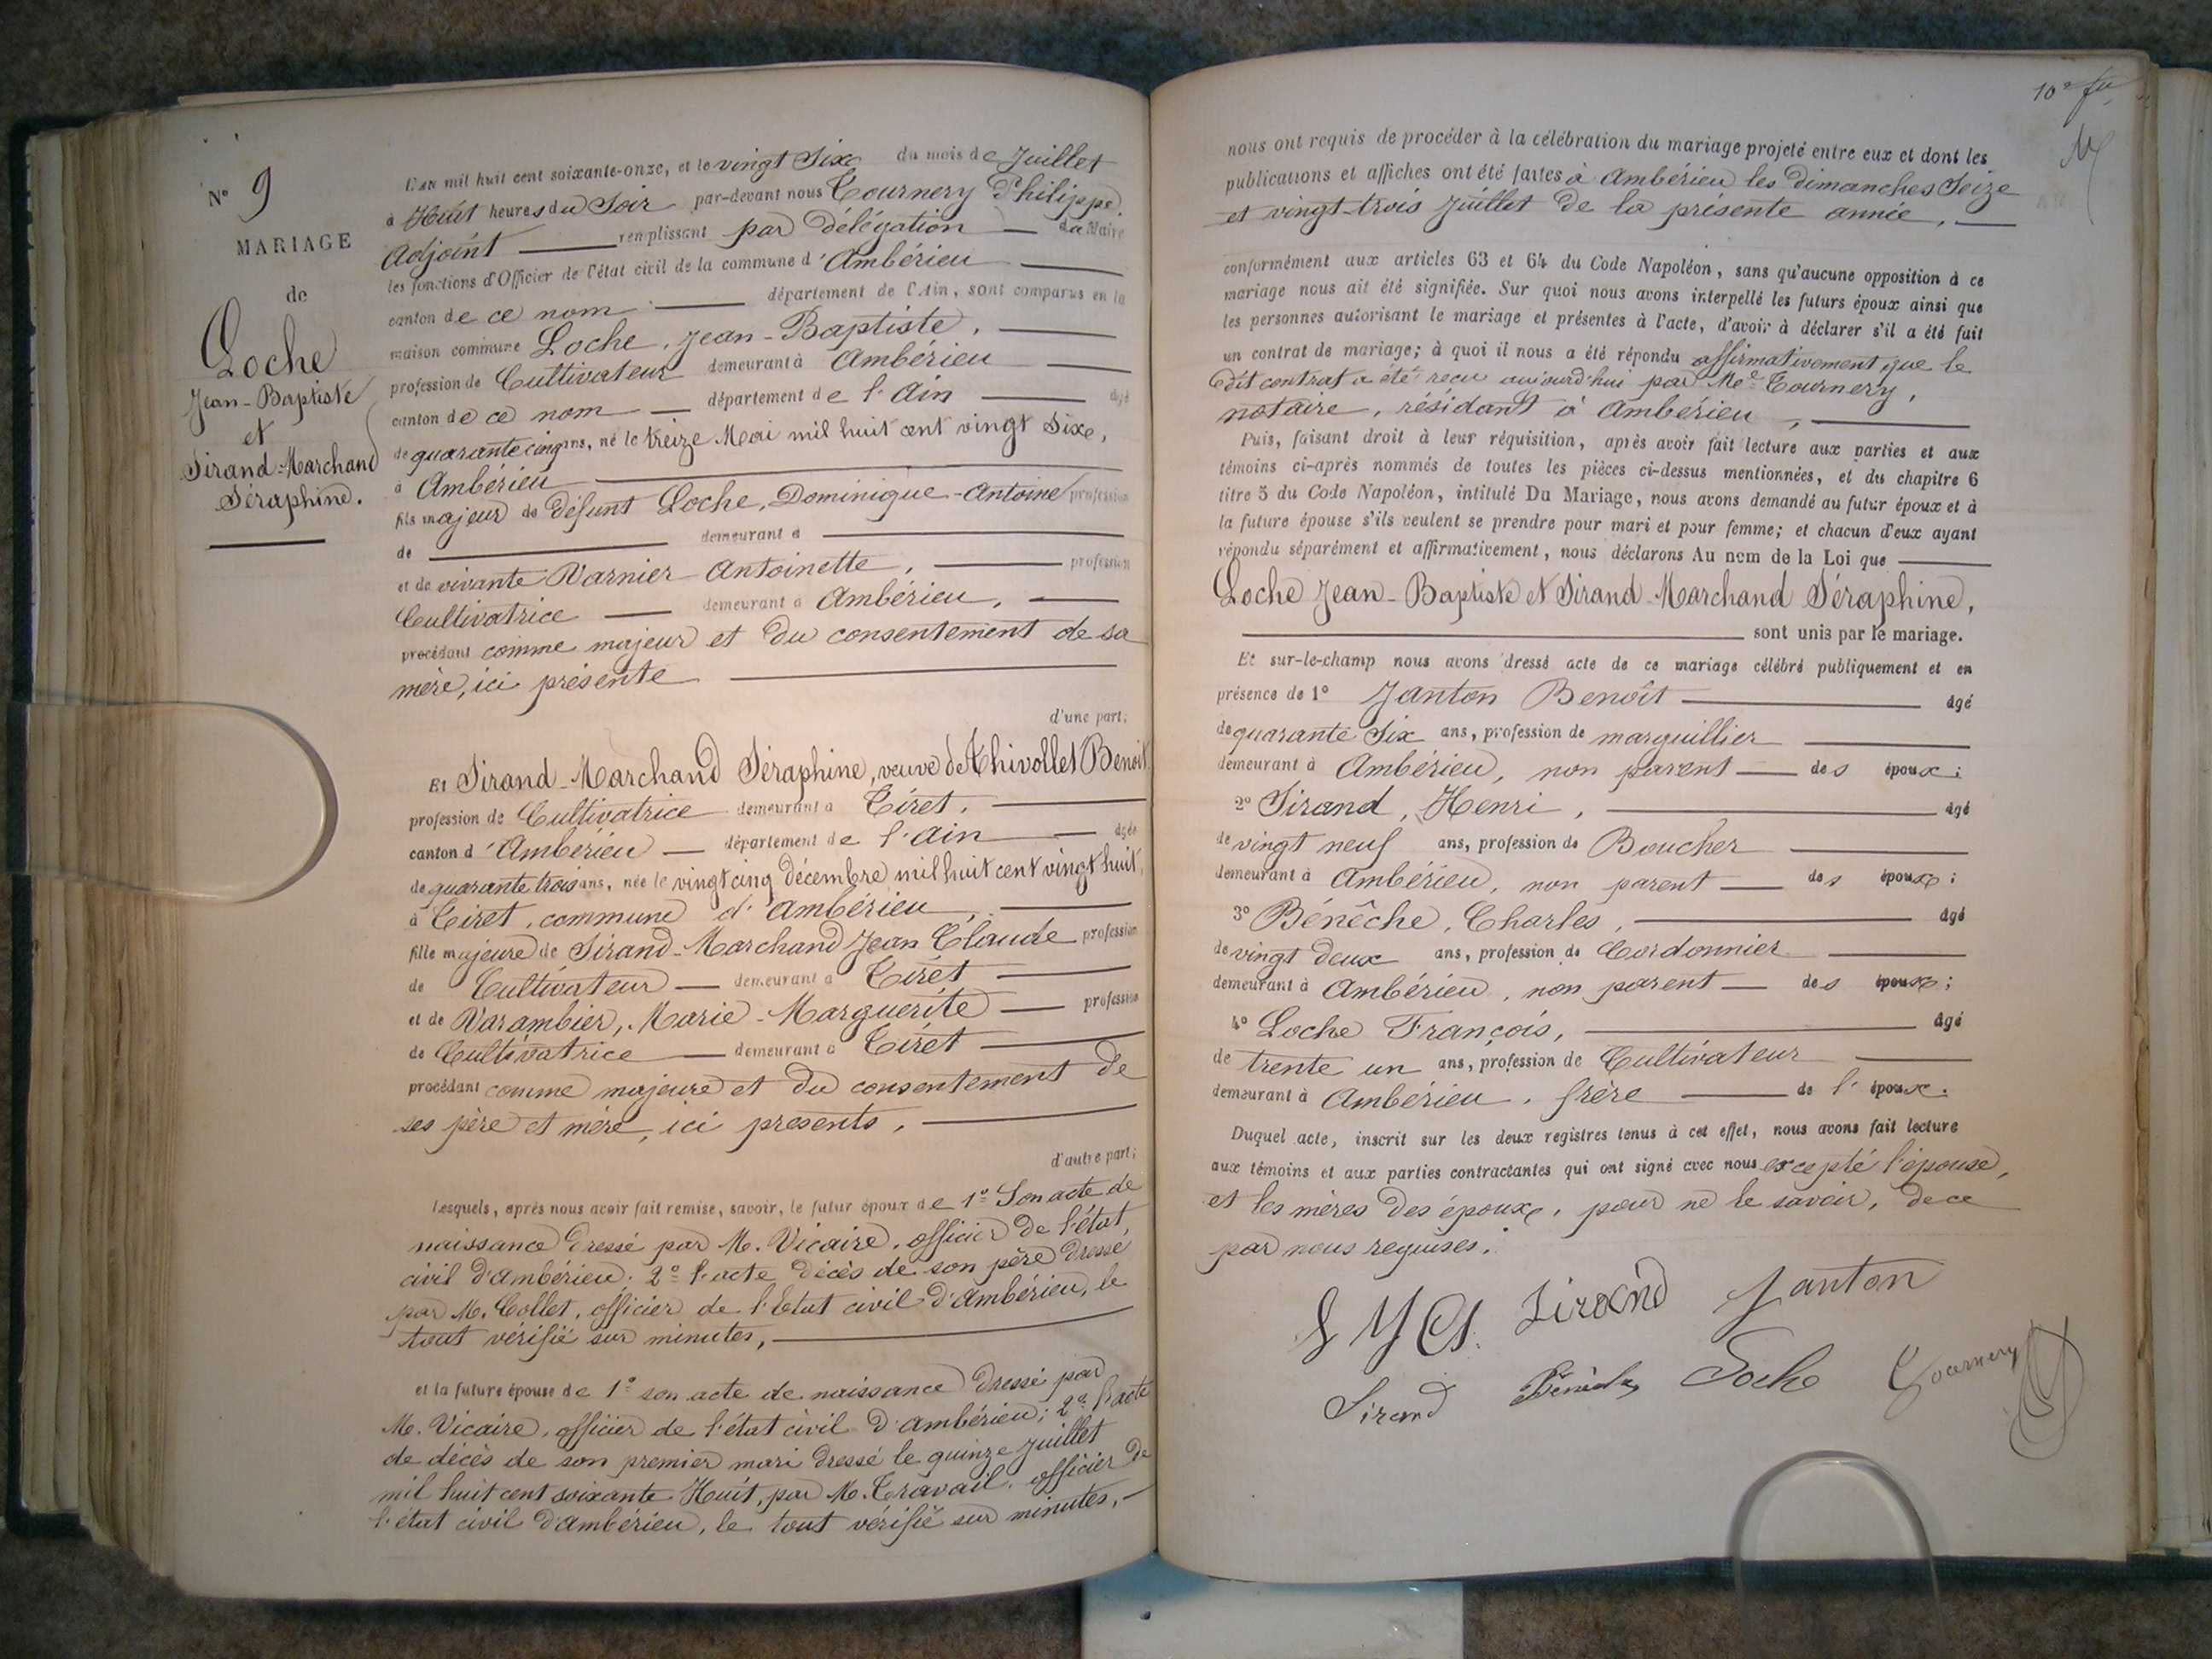 N° 9
MARIAGE
de
Loche
Jean-Baptiste
et
Sirand-Marchand
Séraphine.
L'an mil huit cent soixante-onze, et le vingt Six du mois de Juillet
à Huit heures du Soir par-devant nous Tournery Philippe
Adjoint remplissant par délégation du Maire
les fonctions d'Officier de l'état civil de la commune d'Ambérieu
canton de ce nom département de l'Ain, sont comparus en la
maison commune Loche, Jean-Baptiste,
profession de Cultivateur demeurant à Ambérieu
canton de ce nom département de l'Ain âgé
de quarante cinq ans, né le treize Mai mil huit cent vingt Six,
à Ambérieu
fils majeur de défunt Loche, Dominique-Antoine profession
de demeurant à
et de vivante Varnier Antoinette, profession
Cultivatrice demeurant à Ambérieu,
procédant comme majeur et du consentement de sa
mère, ici présente
d'une part;
Et Sirand-Marchand Séraphine, veuve de Thivollet Benoit
profession de Cultivatrice demeurant à Tiret,
canton d'Ambérieu département de l'Ain âgée
de quarante trois ans, née le vingt cinq décembre mil huit cent vingt huit,
à Tiret, commune d'Ambérieu
fille majeure de Sirand-Marchand Jean Claude profession
de Cultivateur demeurant à Tiret
et de Varambier, Marie-Marguerite profession
de Cultivatrice demeurant à Tiret
procédant comme majeure et du consentement de
ses père et mère, ici presents,
d'autre part;
Lesquels, après nous avoir fait remise, savoir, le futur époux de 1° Son acte de
naissance dressé par M. Vicaire, officier de l'état,
civil d'Ambérieu. 2° l'acte décès de son père dressé
par M. Collet, officier de l'état civil d'Ambérieu, le
tout vérifié sur minutes,
et la future épouse de 1° son acte de naissance dressé par
M. Vicaire, officier de l'état civil d'Ambérieu; 2° l'acte
de décès de son premier mari dressé le quinze Juillet
mil huit cent soixante Huit, par M. Travail, officier de
l'état civil d'Ambérieu, le tout vérifié sur minutes,
nous ont requis de procéder à la célébration du mariage projeté entre eux et dont les
publications et affiches ont été faites à Ambérieu les dimanches Seize
et vingt-trois Juillet de la présente année,
conformément aux articles 63 et 64 du Code Napoléon, sans qu'aucune opposition à ce
mariage nous ait été signifiée. Sur quoi nous avons interpellé les futurs époux ainsi que
les personnes autorisant le mariage et présentes à l'acte, d'avoir à déclarer s'il a été fait
un contrat de mariage; à quoi il nous a été répondu affirmativement que le
dit contrat a été reçu aujourd'hui par Me Tournery,
notaire, résidant à Ambérieu,
Puis, faisant droit à leur réquisition, après avoir fait lecture aux parties et aux
témoins ci-après nommés de toutes les pièces ci-dessus mentionnées, et du chapitre 6
titre 5 du Code Napoléon, intitulé Du Mariage, nous avons demandé au futur époux et à
la future épouse s'ils veulent se prendre pour mari et pour femme; et chacun d'eux ayant
répondu séparément et affirmativement, nous déclarons Au nom de la Loi que
Loche Jean-Baptiste et Sirand-Marchand Séraphine,
sont unis par le mariage.
Et sur-le-champ nous avons dressé acte de ce mariage célébré publiquement et en
présence de 1° Janton Benoît âgé
de quarante Six ans, profession de marguillier
demeurant à Ambérieu, non parent des époux;
2° Sirand, Henri, âgé
de vingt neuf ans, profession de Boucher
demeurant à Ambérieu, non parent des époux;
3° Bénêche, Charles, âgé
de vingt deux ans, profession de Cordonnier
demeurant à Ambérieu, non parent des époux;
4° Loche François, âgé
de trente un ans, profession de Cultivateur
demeurant à Ambérieu, frère de l'époux.
Duquel acte, inscrit sur les deux registres tenus à cet effet, nous avons fait lecture
aux témoins et aux parties contractantes qui ont signé avec nous excepté l'épouse,
et les mères des époux, pour ne le savoir, de ce
par nous requises.
Sirand Janton
Sirand Loche Tournery